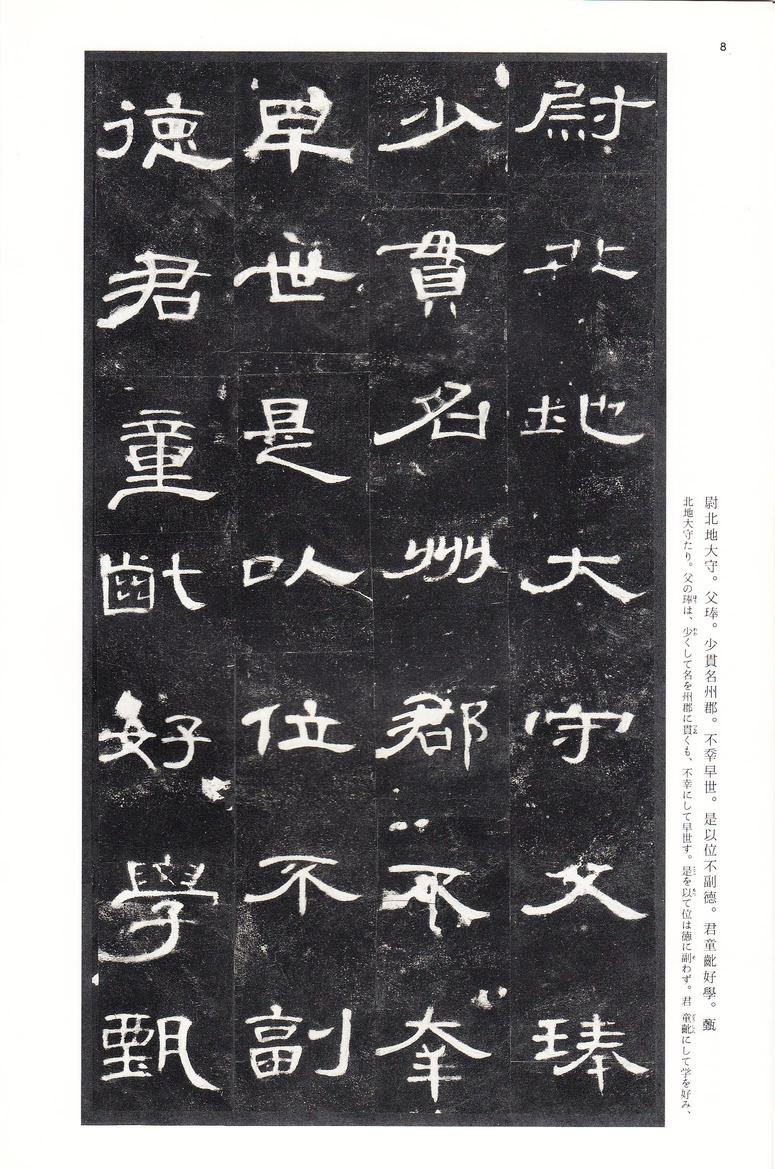 8
尉北地大守父琫
少貫名州郡不幸
早世是以位不副
德君童齔好學甄
尉北地大守。父琫。少貫名州郡。不幸早世。是以位不副德。君童齔好學。甄
北地大守たり。父の琫は、少くして名を州郡に貫くも、不幸にして早世す。是を以て位は徳に副わず。君 童齔にして学を好み、